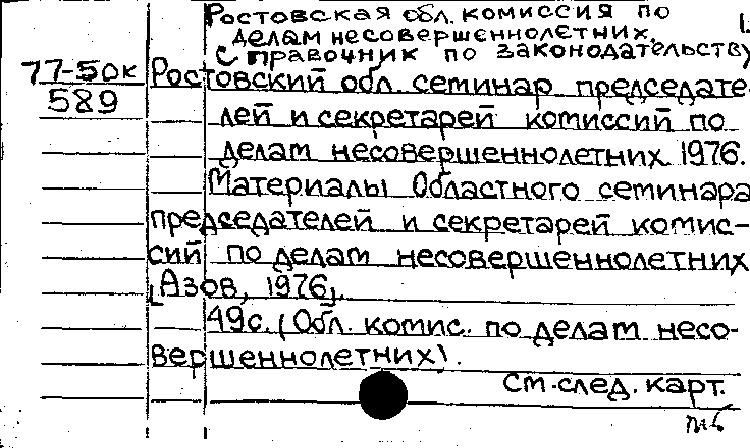 Ростовская обл. комиссия по
делам несовершеннолетних.
Справочник по законодательству
1.
77-50к
589
Ростовский обл. семинар председате-
лей и секретарей комиссий по
делам несовершеннолетних. 1976.
Материалы Областного семинара
председателей и секретарей комис-
сий по делам несовершеннолетних
[Азов, 1976].
49с. (Обл. комис. по делам несо-
вершеннолетних).
См. след. карт.